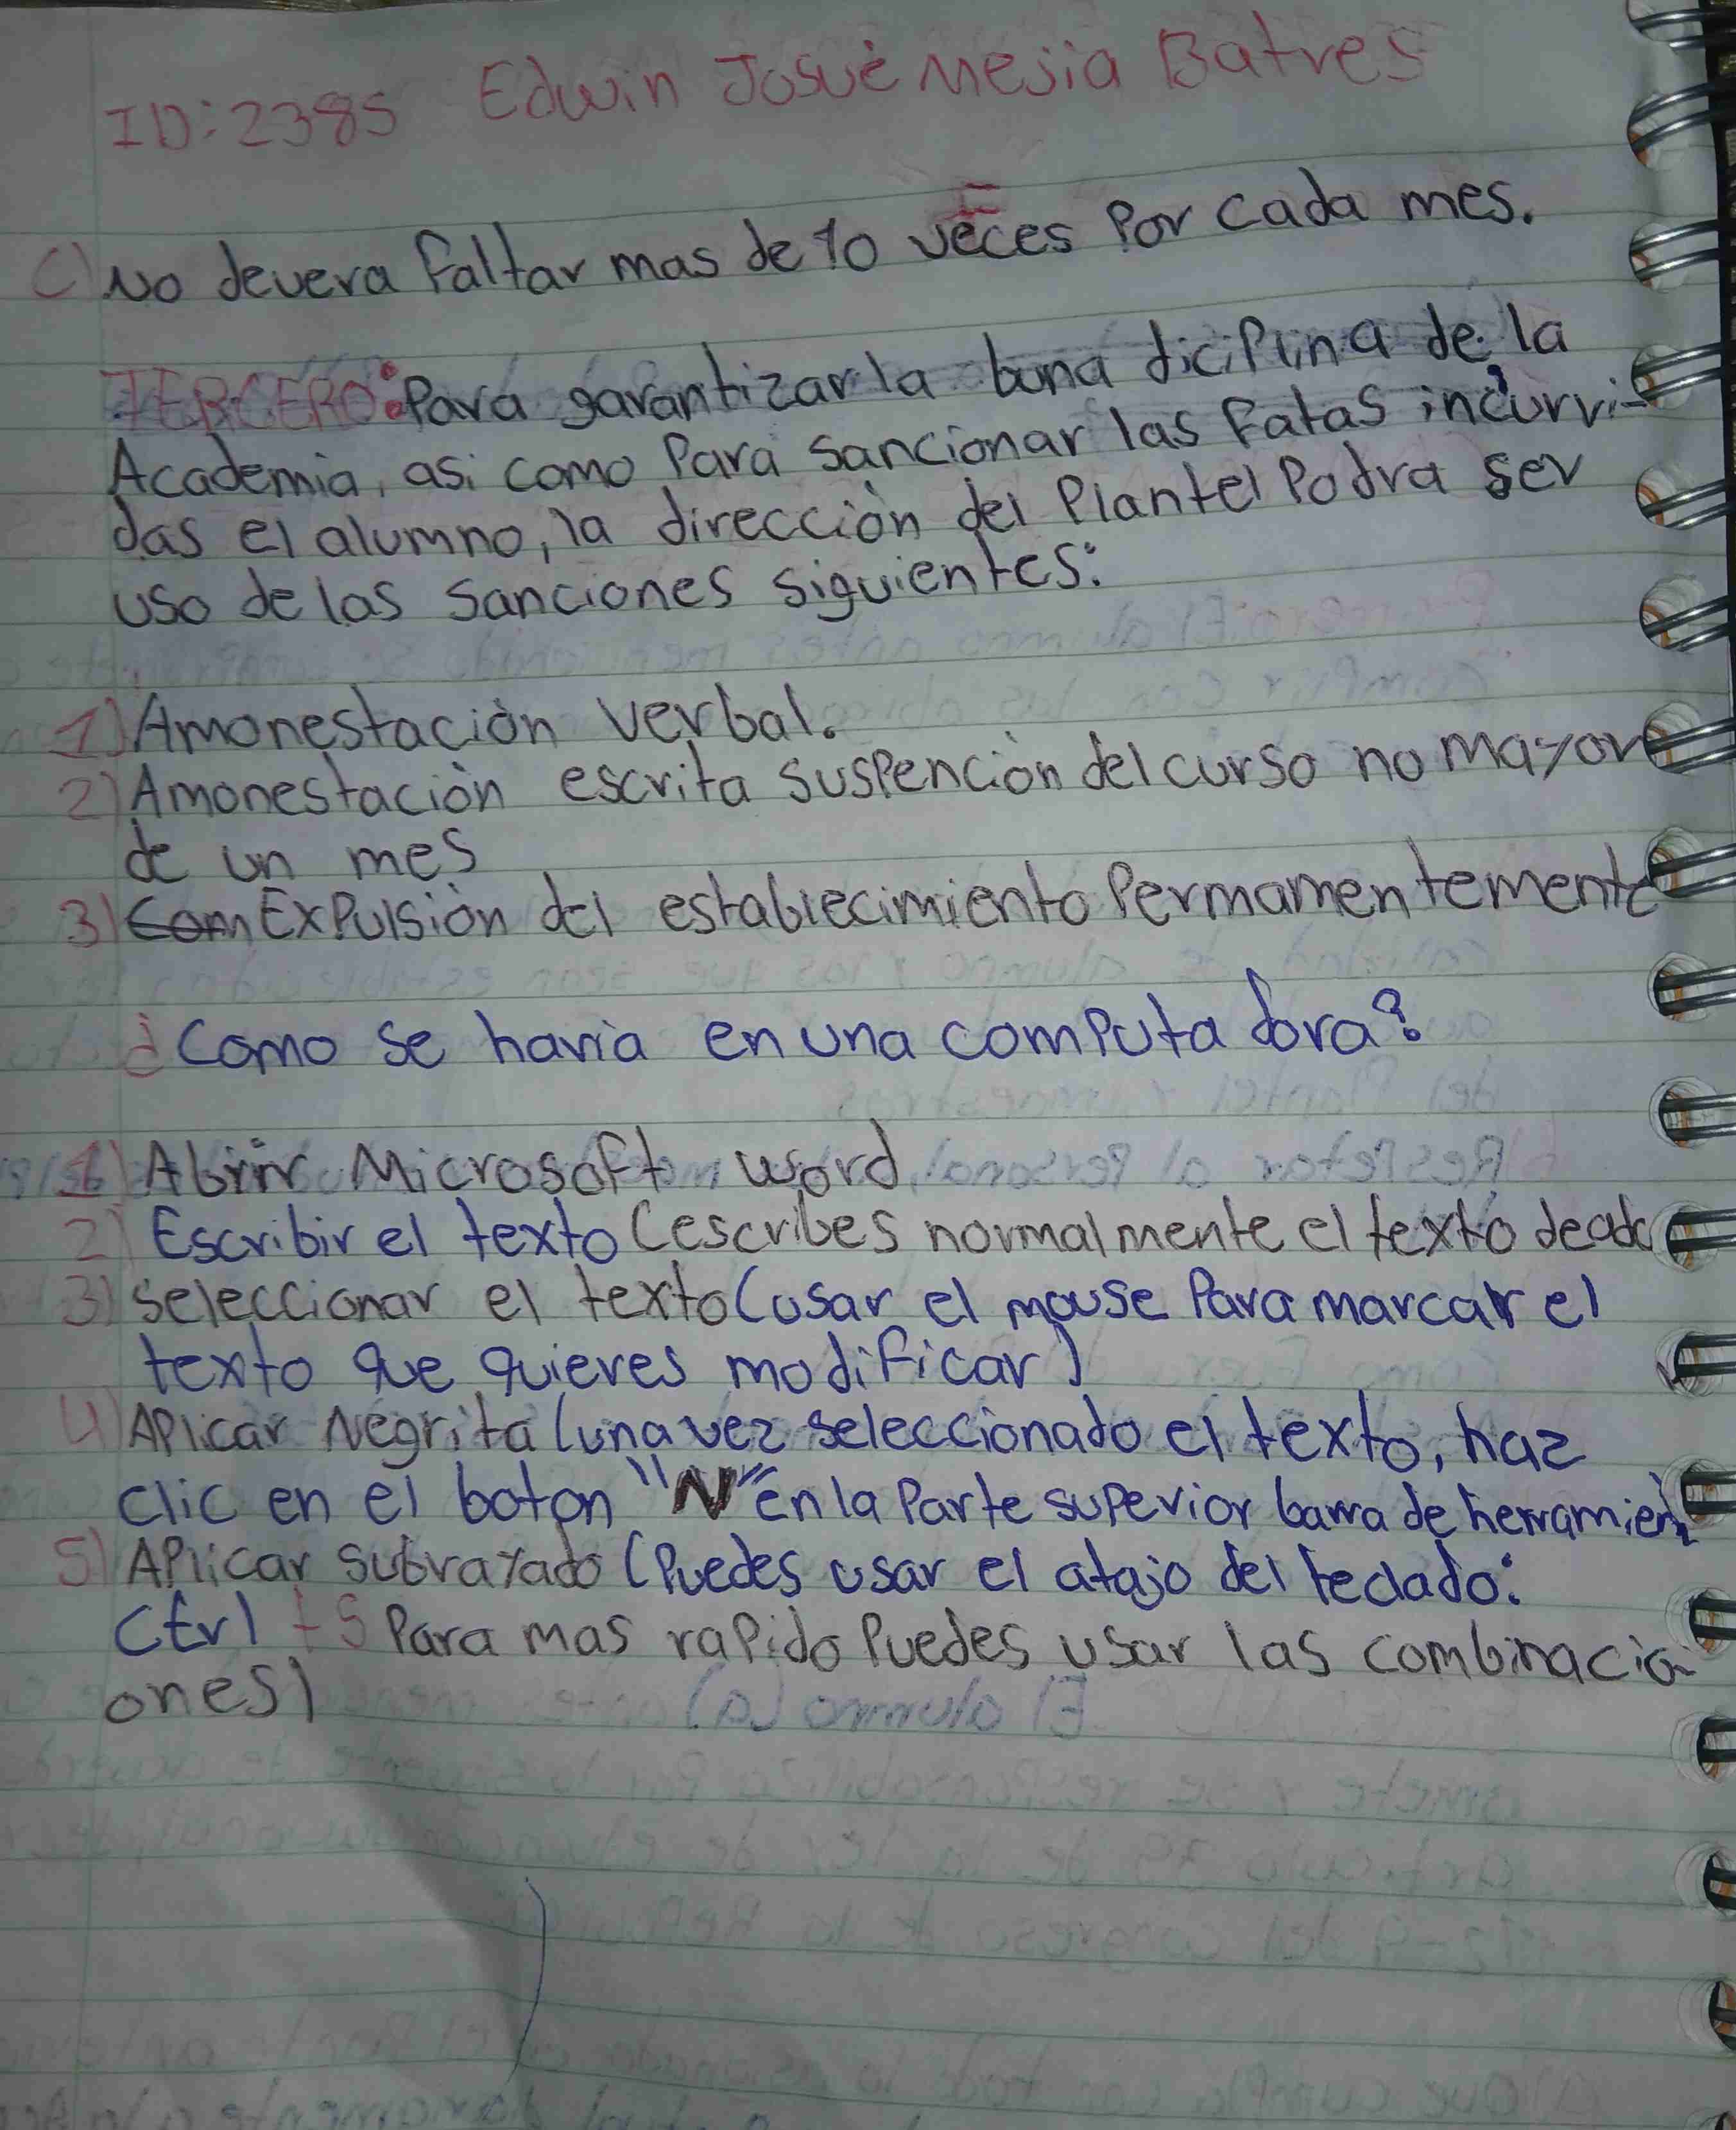 ID: 2385 Edwin Josué Mejia Batres
C) No devera faltar mas de 10 veces Por cada mes.
TERCERO: Para garantizar la buna diciplina de la
Academia, asi como Para sancionar las Fatas incurvi-
das el alumno, la dirección del Plantel Podra ser
uso de las sanciones siguientes:
1) Amonestación verbal.
2) Amonestación escrita suspención del curso no mayor
de un mes
3) Com Expulsión del establecimiento Permamentemente
¿Como se havia en una computadora?
1) Abrir Microsoft word
2) Escribir el texto (escribes normalmente el texto
3) Seleccionar el texto (usar el mouse Para marcar el
texto que quieres modificar)
4) Aplicar Negrita (una vez seleccionado el texto, haz
clic en el boton "N" en la Parte superior barra de herramien
5) Aplicar subrayado (Puedes usar el atajo del teclado:
Ctrl + S Para mas rapido Puedes usar las combinacio
ones)